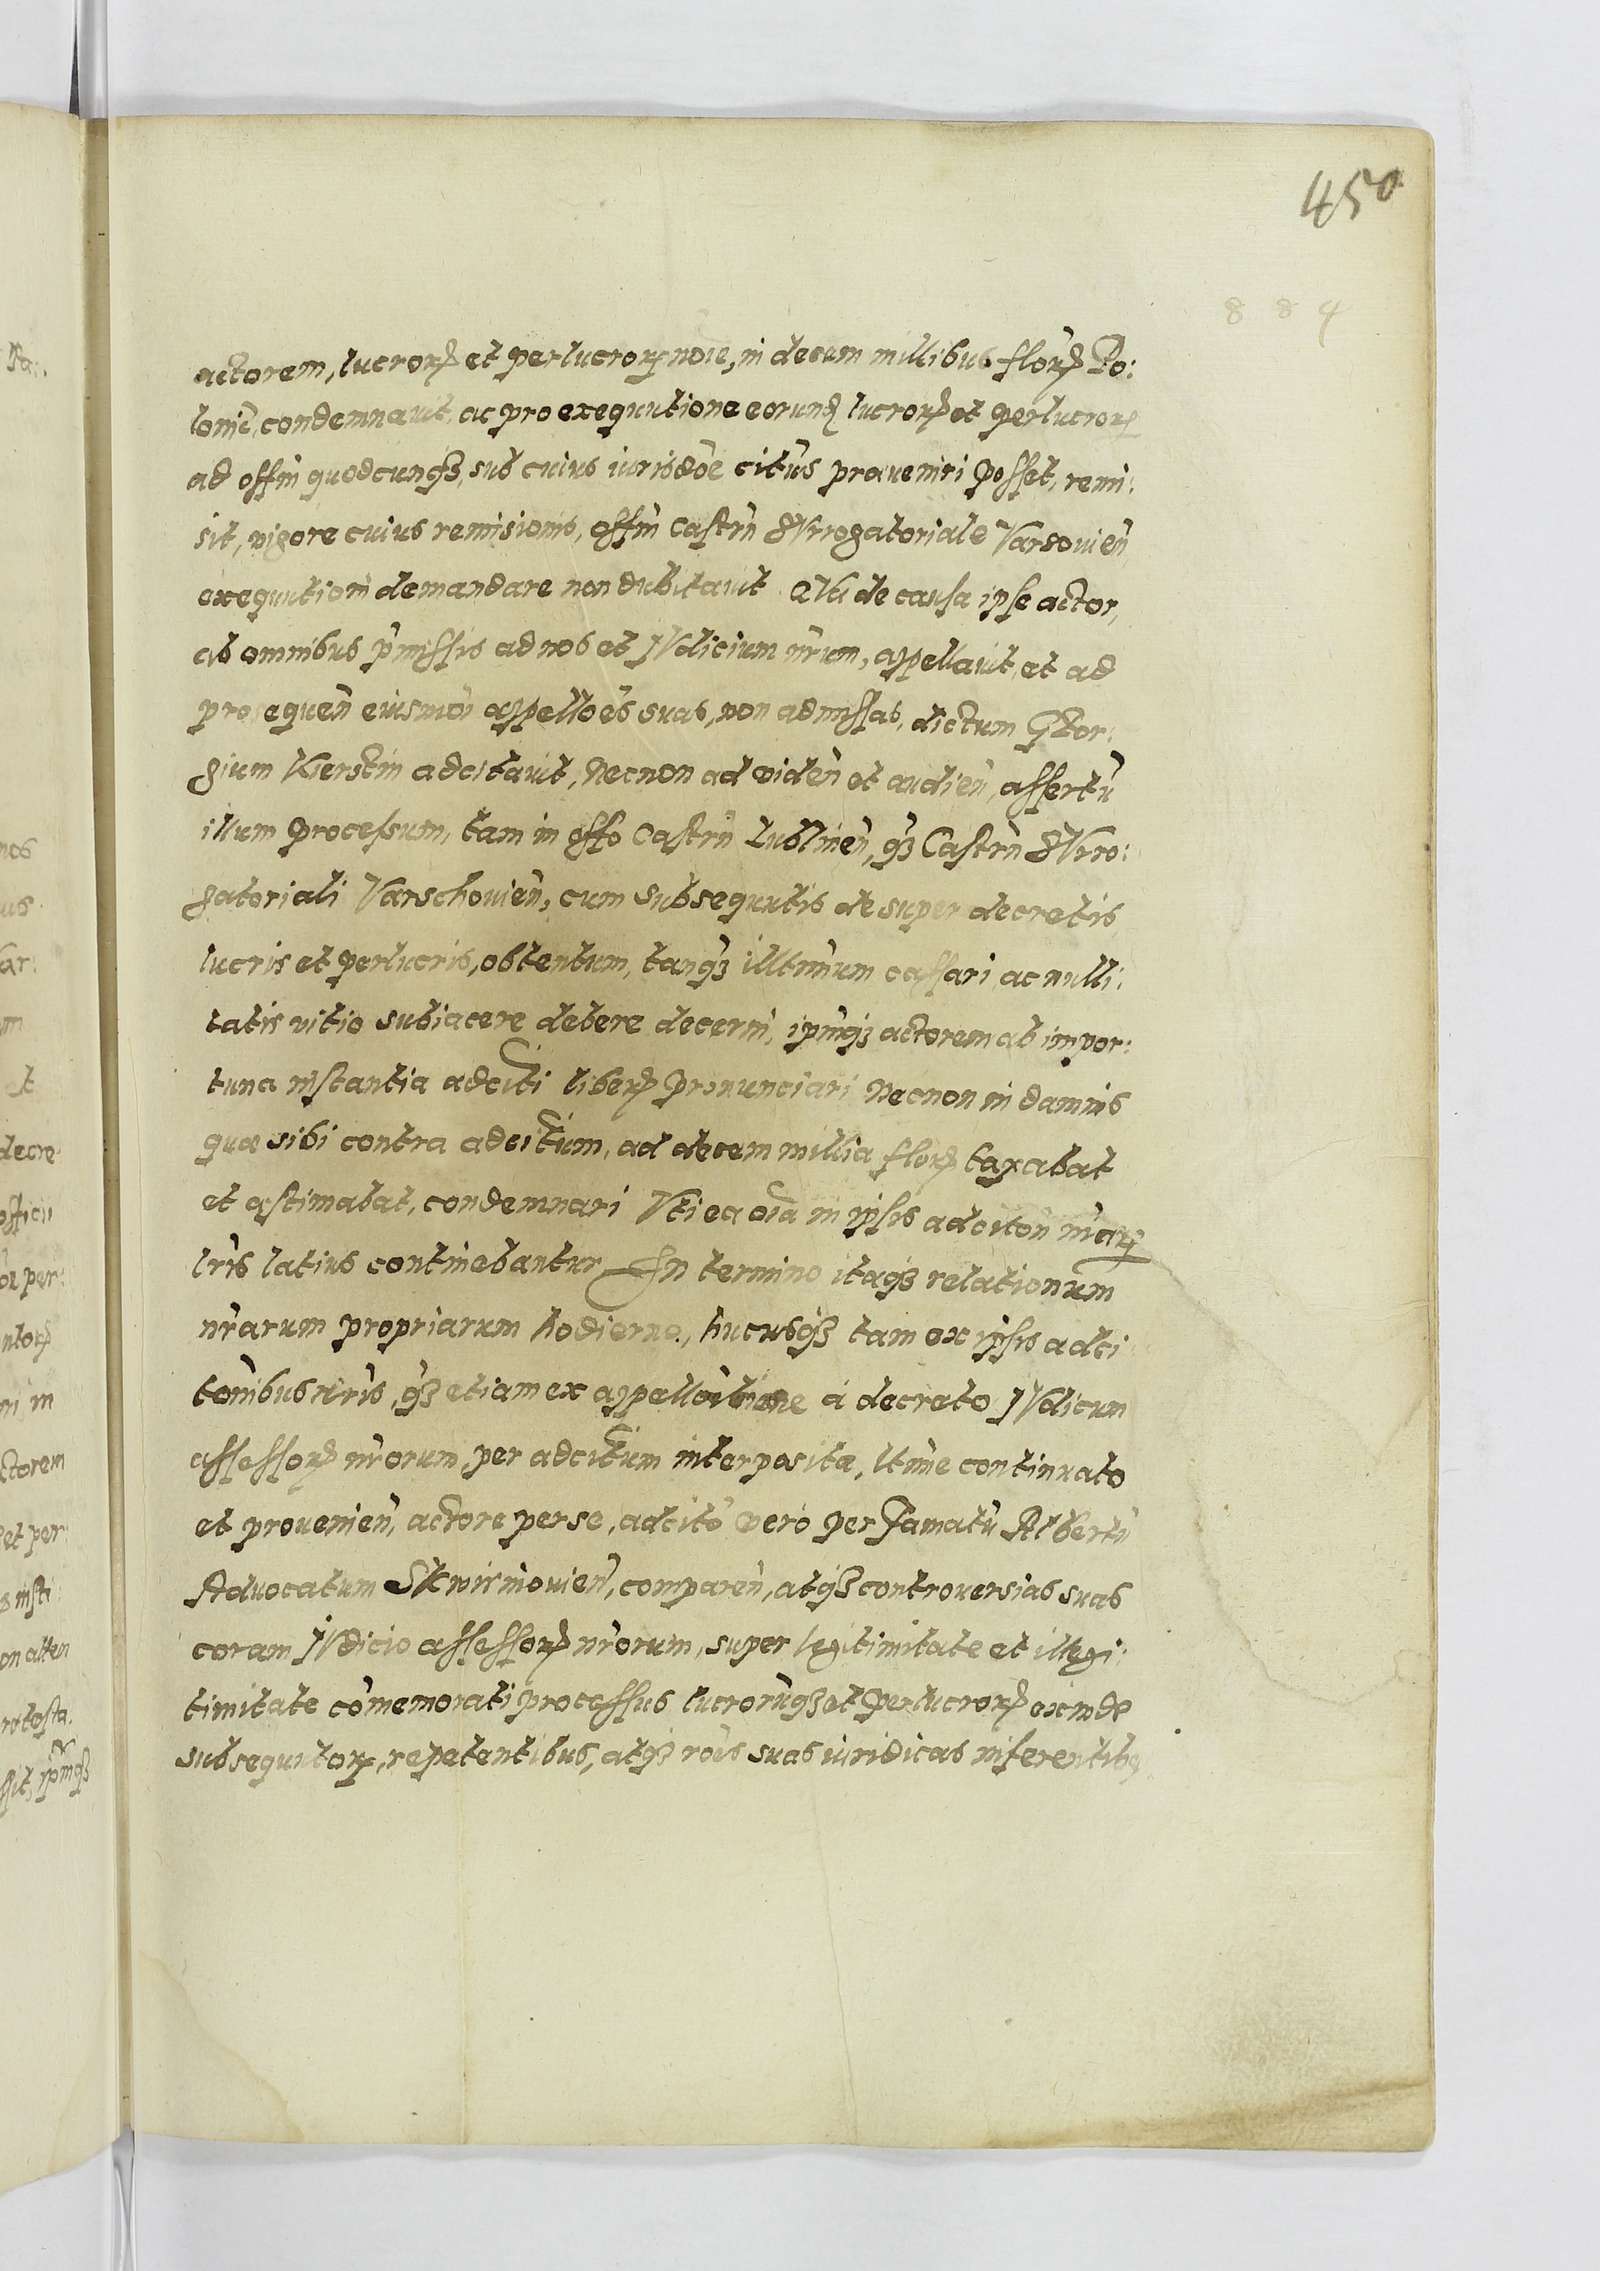 450
8 8 4
actorem, lucroꝝ et perlucroꝝ noīe, in decem millibus floꝛꝝ Po:
lonic̃, condemnauit, ac pro exequutione eorund̃ lucroꝝ et perlucroꝝ
ad offm̃ quodcunqꝫ, sub cuius iurisdōe citũs praeueniri posset, remi:
sit, vigore cuius remisionis, offm̃ Castrñ SVrrogatoriale Varsouieñ
exequutioni demandare non dubitauit QVa de causa ipse actor,
ab omnibus p̃missis ad nos et IVdicium nr̃um, appellauit, et ad
prosequeñ eiusmõi appellõẽs suas, non admissas, dictum GEor:
gium Kierstin adcitauit, Necnon ad videñ et audieñ, assertũ
illum processum, tam in offo Castrñ Lublineñ, qꝫ Castrñ SVrro:
gatoriali Varschouieñ, cum subsequutis desuper decretis
lucris et perlucris, obtentum, tanqꝫ illtimũm cassari, ac nulli:
tatis vitio subiacere debere decerni, ipm̃qꝫ actorem ab impor:
tuna instantia adciti liberꝝ pronunciari Necnon in damnis
quae sibi contra adcitum, ad decem millia floꝛꝝ taxabat
et aestimabat, condemnari Vti ea oĩa in ipsis adcitoñ nr̃aꝝ
lr̃is latius continebantur In termino itaqꝫ relationum
nr̃arum propriarum hodierno, hucusqꝫ tam ex ipsis adci
toñibus nr̃is, qꝫ etiam ex appellõitione à decreto IVdicum
assessoꝝ nr̃orum, per adcitum interpositae, ltim̃e continuato
et prouenieñ, actore per se, adcitõ verò per Famatũ Albertũ
Aduocatum Skwirniouieñ, compareñ, atqꝫ controuersias suas
coram IVdicio assessoꝝ nr̃orum, super legitimitate et illegi:
timitate cõmemorati processus lucrorũqꝫ et perlucroꝝ exinde
subsequutoꝝ, repetentibus, atqꝫ rõẽs suas iuridicas inferentibꝫ